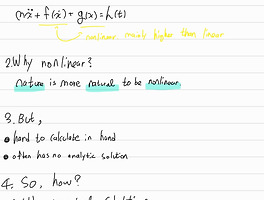 mẍ + f(ẋ) + g(x) = h(t)
nonlinear mainly higher than linear
2. Why nonlinear?
nature is more natural to be nonlinear.
3. But,
• hard to calculate in hand
• often has no analytic solution
4. So, how?